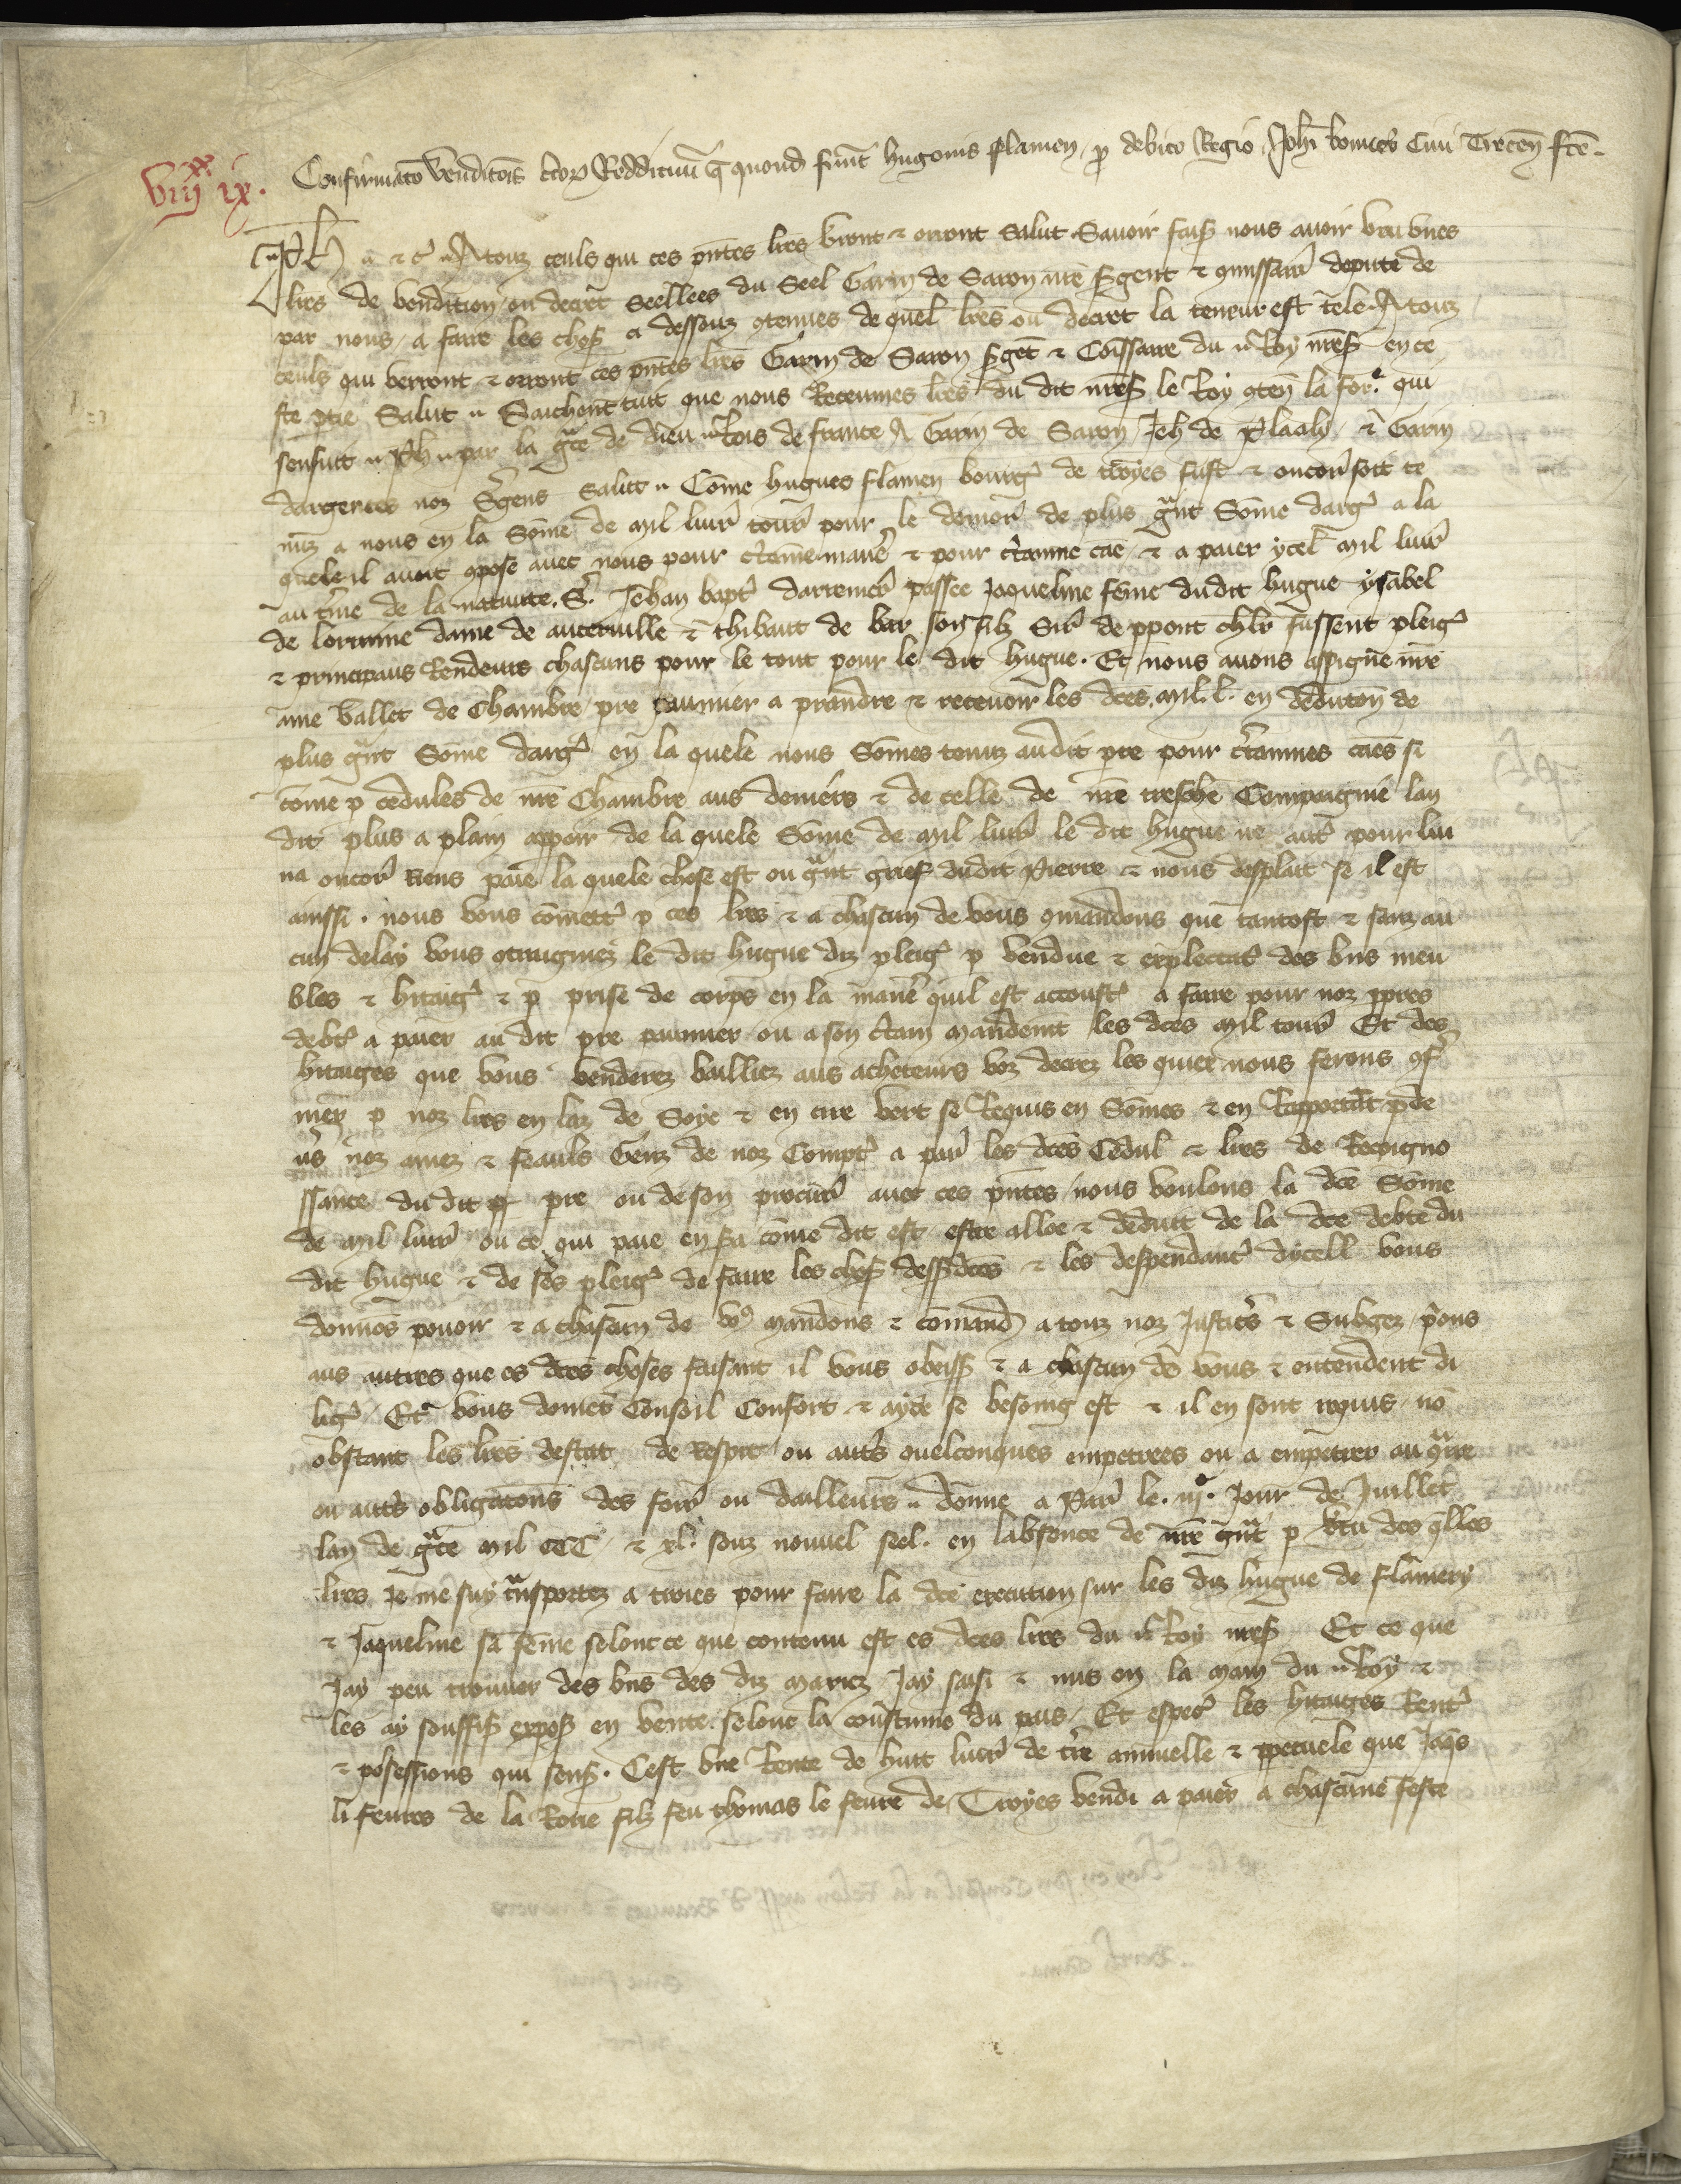 Confirmaco venditois ctor Reddituu q quond fuut hugonis flamen p debito Regio Johi Civi Trecen fce
viij xx ix.
Ph a & c Atouz ceuls qui ces pntes lres vront & orront Salut Savoir fais nous avoir veu unes
lres de vendition ou decret seellees du Seel Garin de Saron nre sgent & 9missair depute de
par nous a faire les chos ci dessouz 9tenues de quel lres ou decret la teneur est tele Atouz
ceuls qui verront & orront ces pntes lres Garin de Saron sget & Comssaire du Roy nres en ce
ste ptie Salut Saichent tuit que nous Receumes lres du dit nres le Roy 9ten la for. qui
sensuit Ph par la grace de dieu Rois de france A Garin de Saron Jeh de & Garin
dargences noz Sgens Salut Come hugues flamen bourg de troyes fust & oncor soit te
nuz a nous en la Some de mil livr tour pour le demor de plus grant Some darg a la
quele il avoit 9pose avec nous pour ctaine manie & pour ctainne cae & a paier ycel mil livr
au tme de la nativite S. Jehan bapt darrenier passee Jaqueline feme dudit hugue ysabel
de lorrainne dame de & thibaut de bar son filz Sir de ppont chlr fussent pleig
& principaus Rendeurs chascuns pour le tout pour le dit hugue. Et nous avons assigne nre
ame vallet de Chambre pre paumier a prandre & recevoir les dces mil l. en deduton de
plus grant Some darg en la quele nous Somes tenuz audit pre pour ctainnes caes si
come p cedules de nre Chambre aus deniers & de celle de nre treschie Compaignie lan
dit plus a plain appoir de la quele Some de mil livr le dit hugue ne aut pour lui
na oncor Riens paie la quele chose est ou grant grief dudit Pierre & nous desplait se il est
ainssi. nous vous comett p ces lres & a chascun de vous 9mandons que tantost & sanz au
cun delay vous 9traigniez le dit hugue diz pleig p vendue & explectat des bns meu
bles & hitaig & p prise de corps en la manie quil est accoust a faire pour noz ppres
debt a paier au dit pre paumier ou a son ctain mandemt les dces mil tour Et des
hitaiges que vous venderez bailliez aus acheteurs voz decrez les quiex nous ferons 9f
mer p noz lres en laz de Soye & en cire vert se Requis en Somes & en Rapportat pde
vs noz amez & feauls Genz de noz Compt a par les dces Cedul & lres de Recoigno
ssance du dit pre ou de son procur avec ces pntes nous voulons la dce Some
de mil livr ou ce qui paie en sa come dit est estre alloe & deduit de la dce debte du
dit hugue & de ses pleig de faire les chos dessdces & les despendant dycell vous
donnos povoir & a chascun de vo9 mandons & comand a touz noz Justics & Subgez pons
aus autres que es dces choses faisant il vous obeiss & a chascun de vous & entendent di
lig Et vous donet Consoil Confort & ayde se besoing est & il en sont requis no
obstant les lres destat de Respit ou auts quelconques empetrees ou a empetrer au 9tre
ou auts obligatons des foir ou dailleurs donne a Par le. iij. Jour de Juillet
lan de grace mil CCC & xl. souz nouvel seel. en labsence de nre grant p vtu des qlles
lres Je me suy transportez a troies pour faire la dce execution sur les diz hugue de flamery
& Jaqueline sa feme selonc ce que contenu est es dces lres du Roy nres Et ce que
Jay peu trouver des bns des diz mariez Jay saisi & mis en la main du Roy &
les ay souffis expos en vente selonc la coustume du pais Et espec les hitaiges Rent
& posessions qui sens. Cest une Rente de huit livr de tre annuelle & ppetuele que Jaqs
li fevres de la Roue filz feu thomas le fevre de Troyes vendi a paier a chascune feste